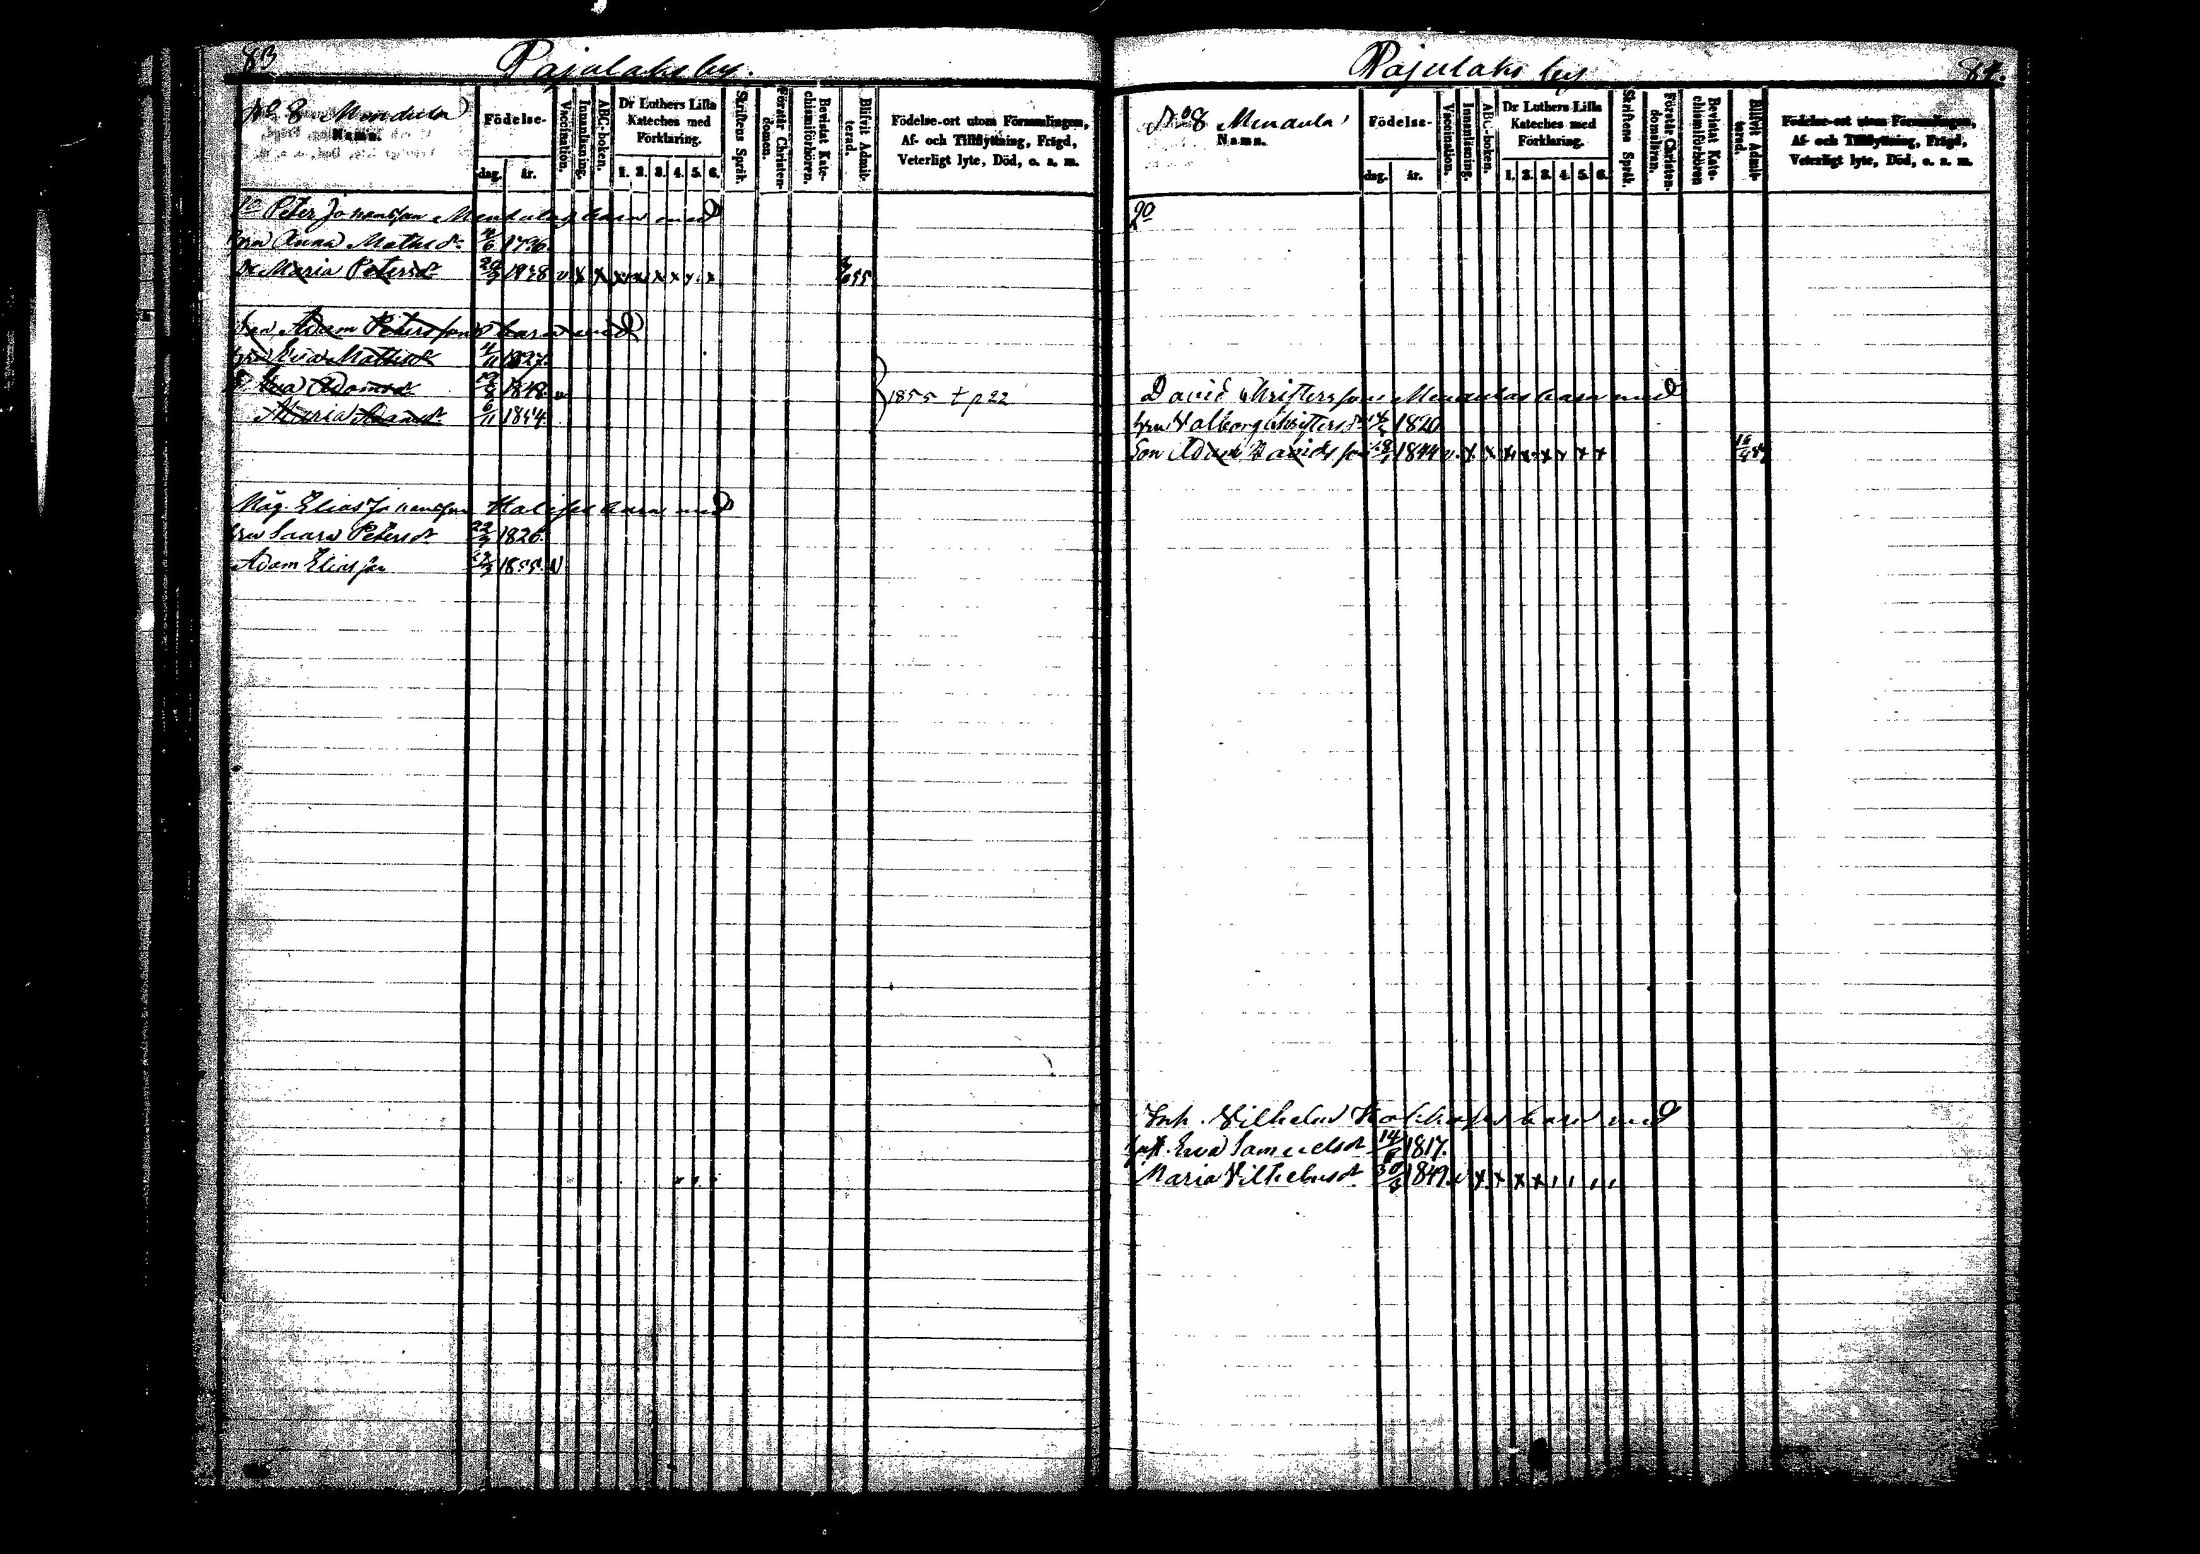 83
Pajulaks by.
No 8 Mendula
Namn.
Födelse-
dag. år.
Vaccination.
Innanläsning.
ABC-boken.
Dr Luthers Lilla
Kateches med
Förklaring.
1. 2. 3. 4. 5. 6.
Skriftens Språk.
Förstår Christen-
domen.
Bevistat Kate-
chismiförhören.
Blifvit Admit-
terad.
Födelse-ort utom Församlingen,
Af- och Tillflyttning, Frägd,
Veterligt lyte, Död, o. s. m.
1o Peter Johansson barn med
Anna Matsdr 1796.
Dr Maria Petersdr v x x x x x x x x
Son Adam Petersson barn med
Eva Matsdr 1827.
Eva Adamsdr 1848 v
Maria Adamsdr 6/11 1854
1855 + p 22
Måg. Elias Johansson barn med
Petersdr 22 1826.
Adam Eliasson 1855. v
Pajulaks by
84.
No 8 Mendula
Namn.
Födelse-
dag. år.
Vaccination.
Innanläsning.
ABC-boken.
Dr Luthers Lilla
Kateches med
Förklaring.
1. 2. 3. 4. 5. 6.
Skriftens Språk.
Förstår Christen-
domsläran.
Bevistat Kate-
chismiförhören
Blifvit Admit-
terad.
Födelse-ort utom Församlingen,
Af- och Tillflyttning, Frägd,
Veterligt lyte, Död, o. s. m.
2o
David Christersson barn med
Valborg Christersdr 1820
Son Adam Davidsson 1844 v. x x x x x x x x
Inh. Vilhelm barn med
Eva Samuelsdr 14 1817.
Maria Vilhelmsdr 30 1849. v x x x x